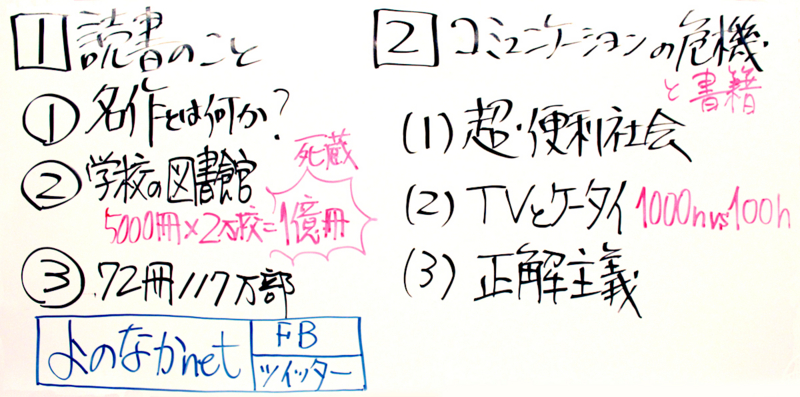 1 読書のこと
① 名作とは何か?
② 学校の図書館
死蔵
5000冊×2万校=1億冊
③ 72冊117万部
よのなかnet
FB
ツイッター
2 コミュニケーションの危機
と書籍
(1) 超・便利社会
(2) TVとケータイ 1000h vs 100h
(3) 正解主義